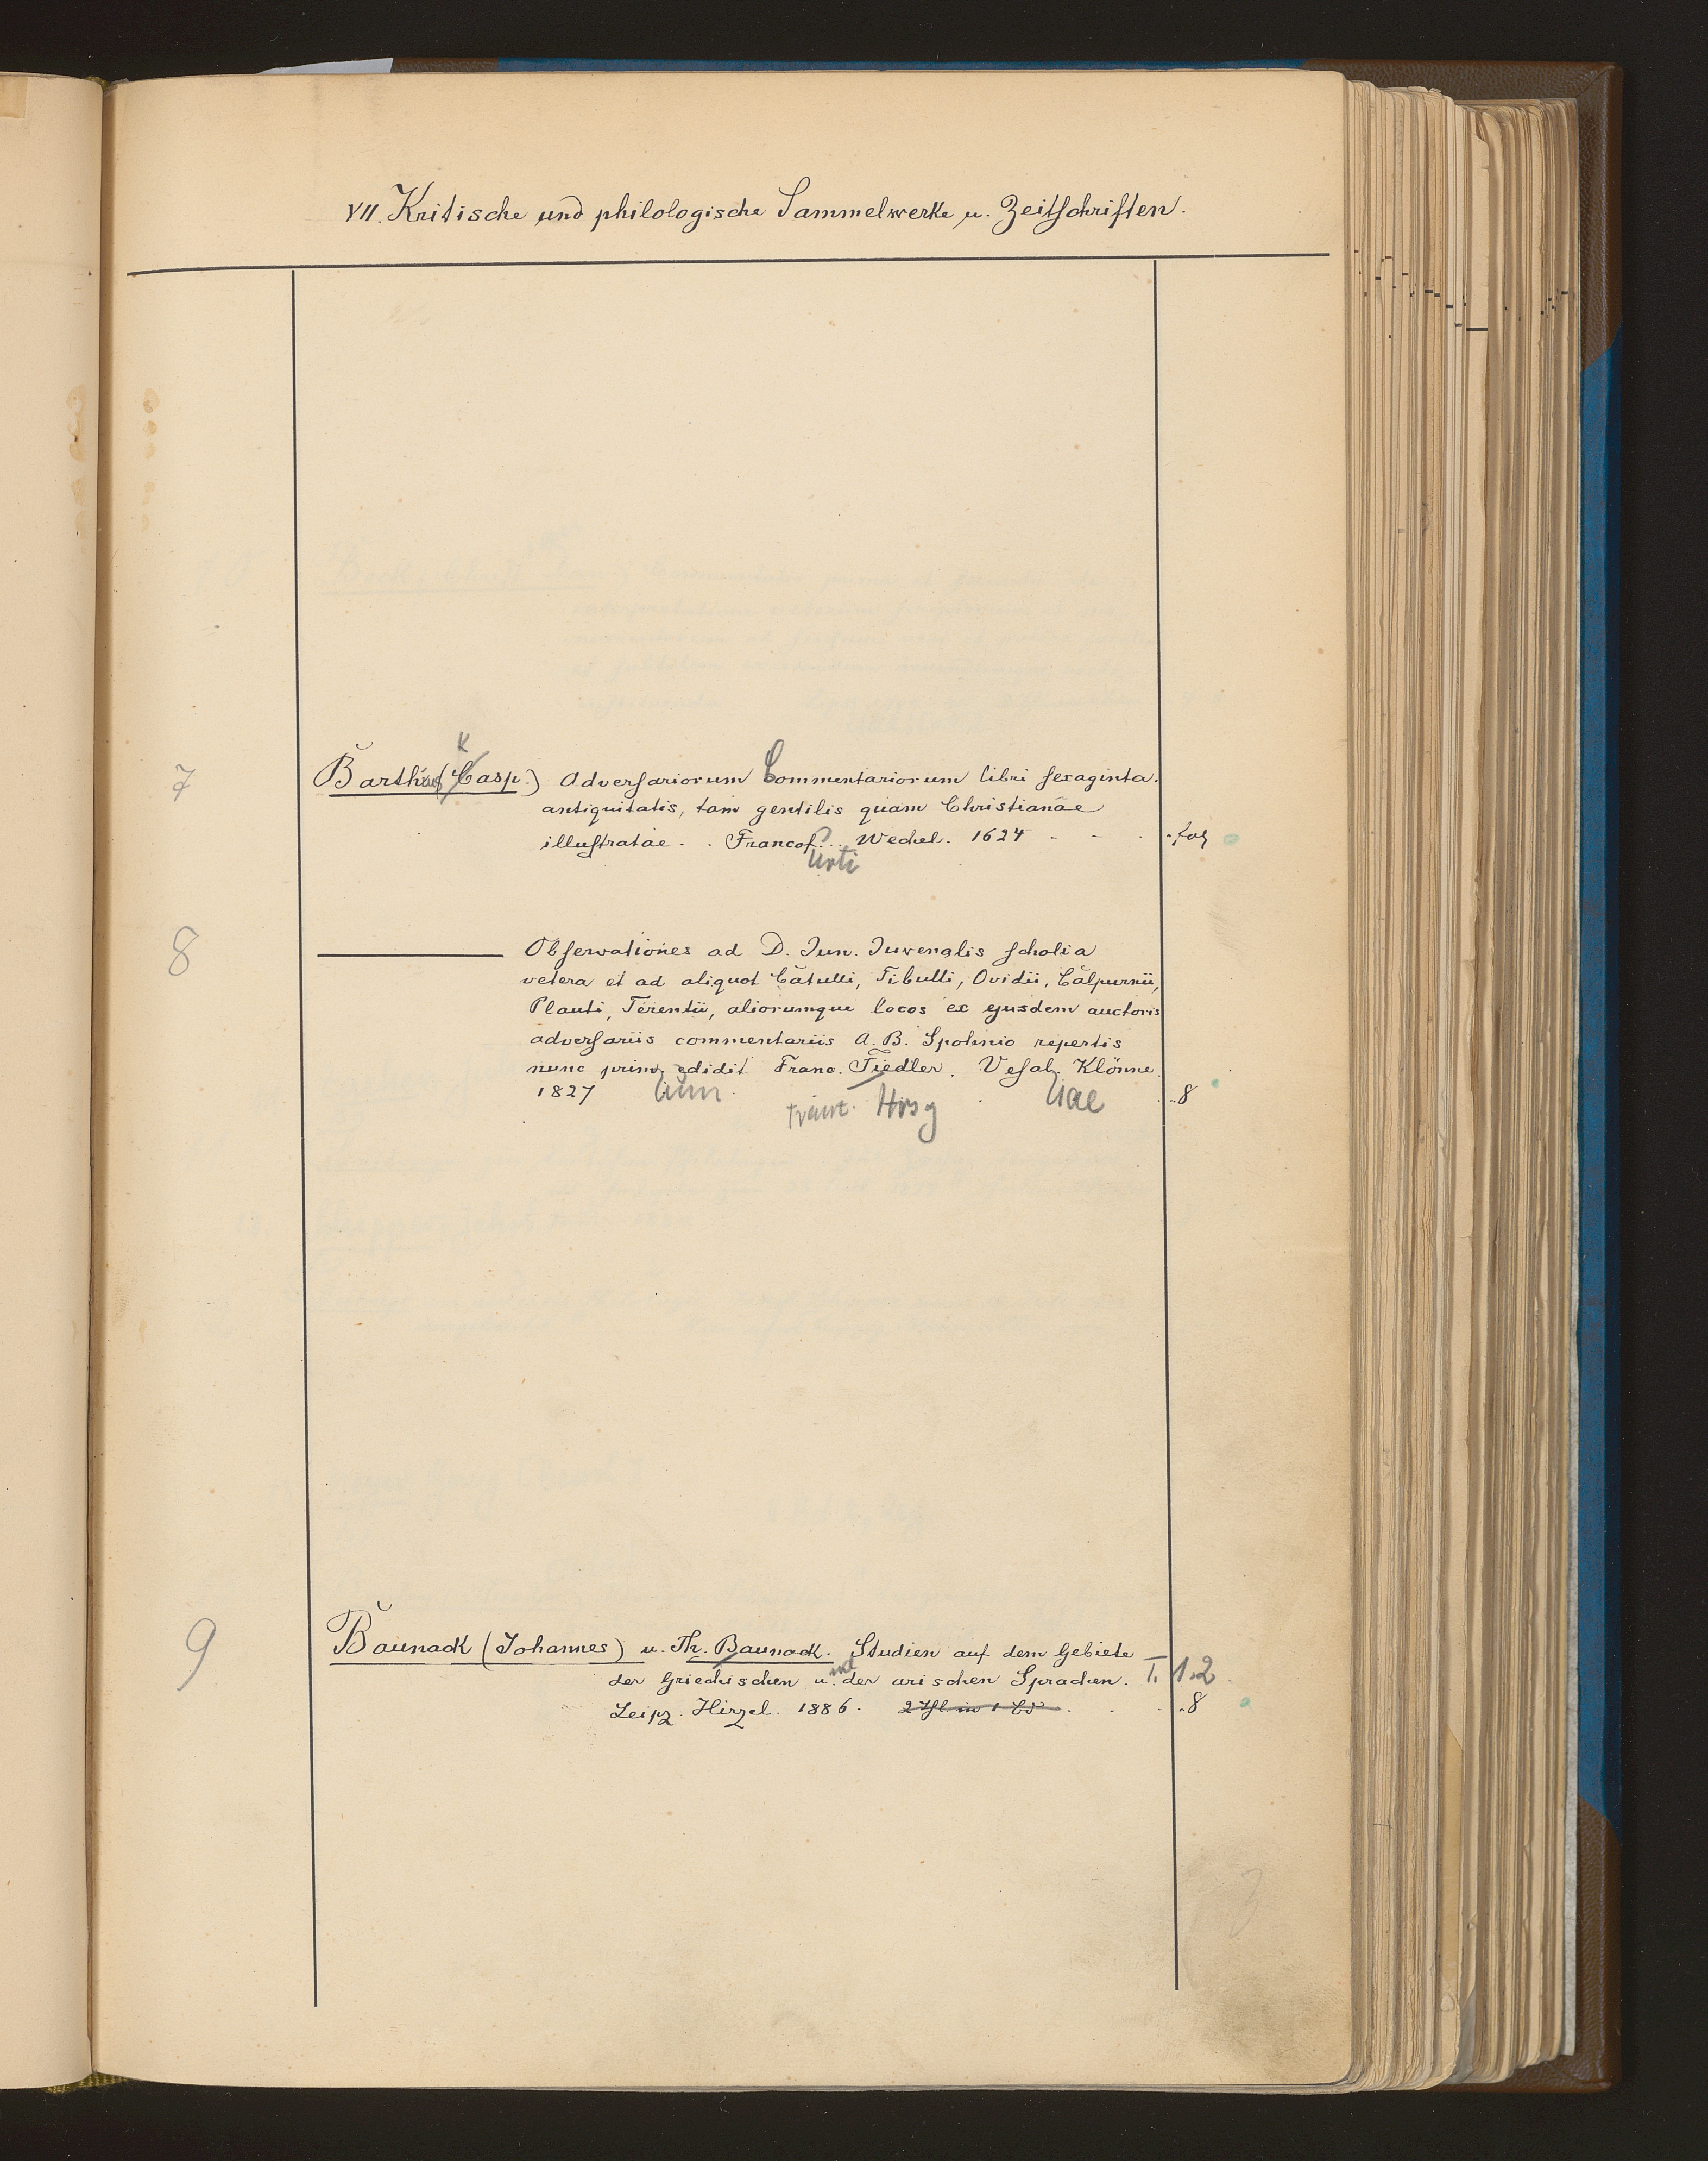 VII. Kritische und philologische Sammelwerke u. Zeitschriften.
K
7 Barthius (Casp.) Adversariorum Commentariorum libri sexaginta.
antiquitatis, tam gentilis quam Christianae
illustratae. . Francof. . Wechel. 1624 - - . . fol
urti
8 ——— Observationes ad D. Jun. Juvenalis scholia
vetera et ad aliquot Catulli, Tibulli, Ovidii, Calpurnii,
Plauti, Terentii, aliorumque locos ex ejusdem auctoris
adversariis commentariis A. B. Spohnio repertis
nunc prim. edidit Franc. Fiedler. Vesal. Klönne.
1827 . . . 8
um Franc. Hrsg iae
9 Baunack (Johannes) u. Th. Baunack. Studien auf dem Gebiete
der Griechischen und der arischen Sprachen. I. 1.2
Leipz. Hirzel. 1886. 2 Thl in 1 Bd . . . 8